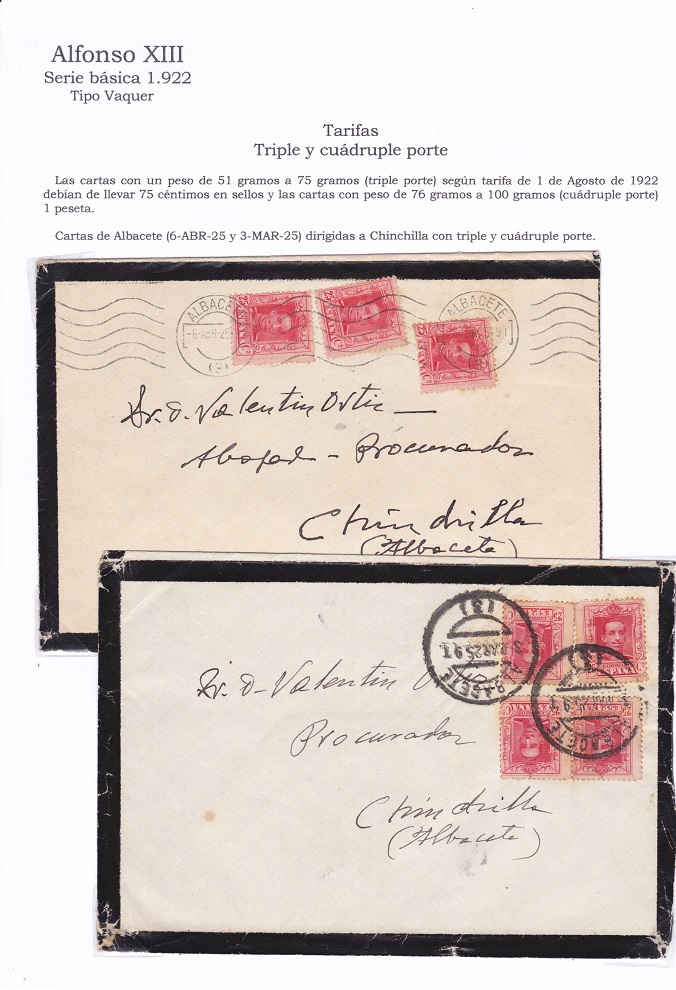 Alfonso XIII
Serie básica 1.922
Tipo Vaquer
Tarifas
Triple y cuádruple porte
Las cartas con un peso de 51 gramos a 75 gramos (triple porte) según tarifa de 1 de Agosto de 1922
debían de llevar 75 céntimos en sellos y las cartas con peso de 76 gramos a 100 gramos (cuádruple porte)
1 peseta.
Cartas de Albacete (6-ABR-25 y 3-MAR-25) dirigidas a Chinchilla con triple y cuádruple porte.
ALBACETE
-6 ABR-25
(3)
ALBACETE
Sr. D. Valentin Ortiz
Abogado - Procurador
Chinchilla
(Albacete)
(3)
ALBACETE
ESPAÑA
(3)
ALBACETE
Sr. D. Valentin
Procurador
Chinchilla
(Albacete)